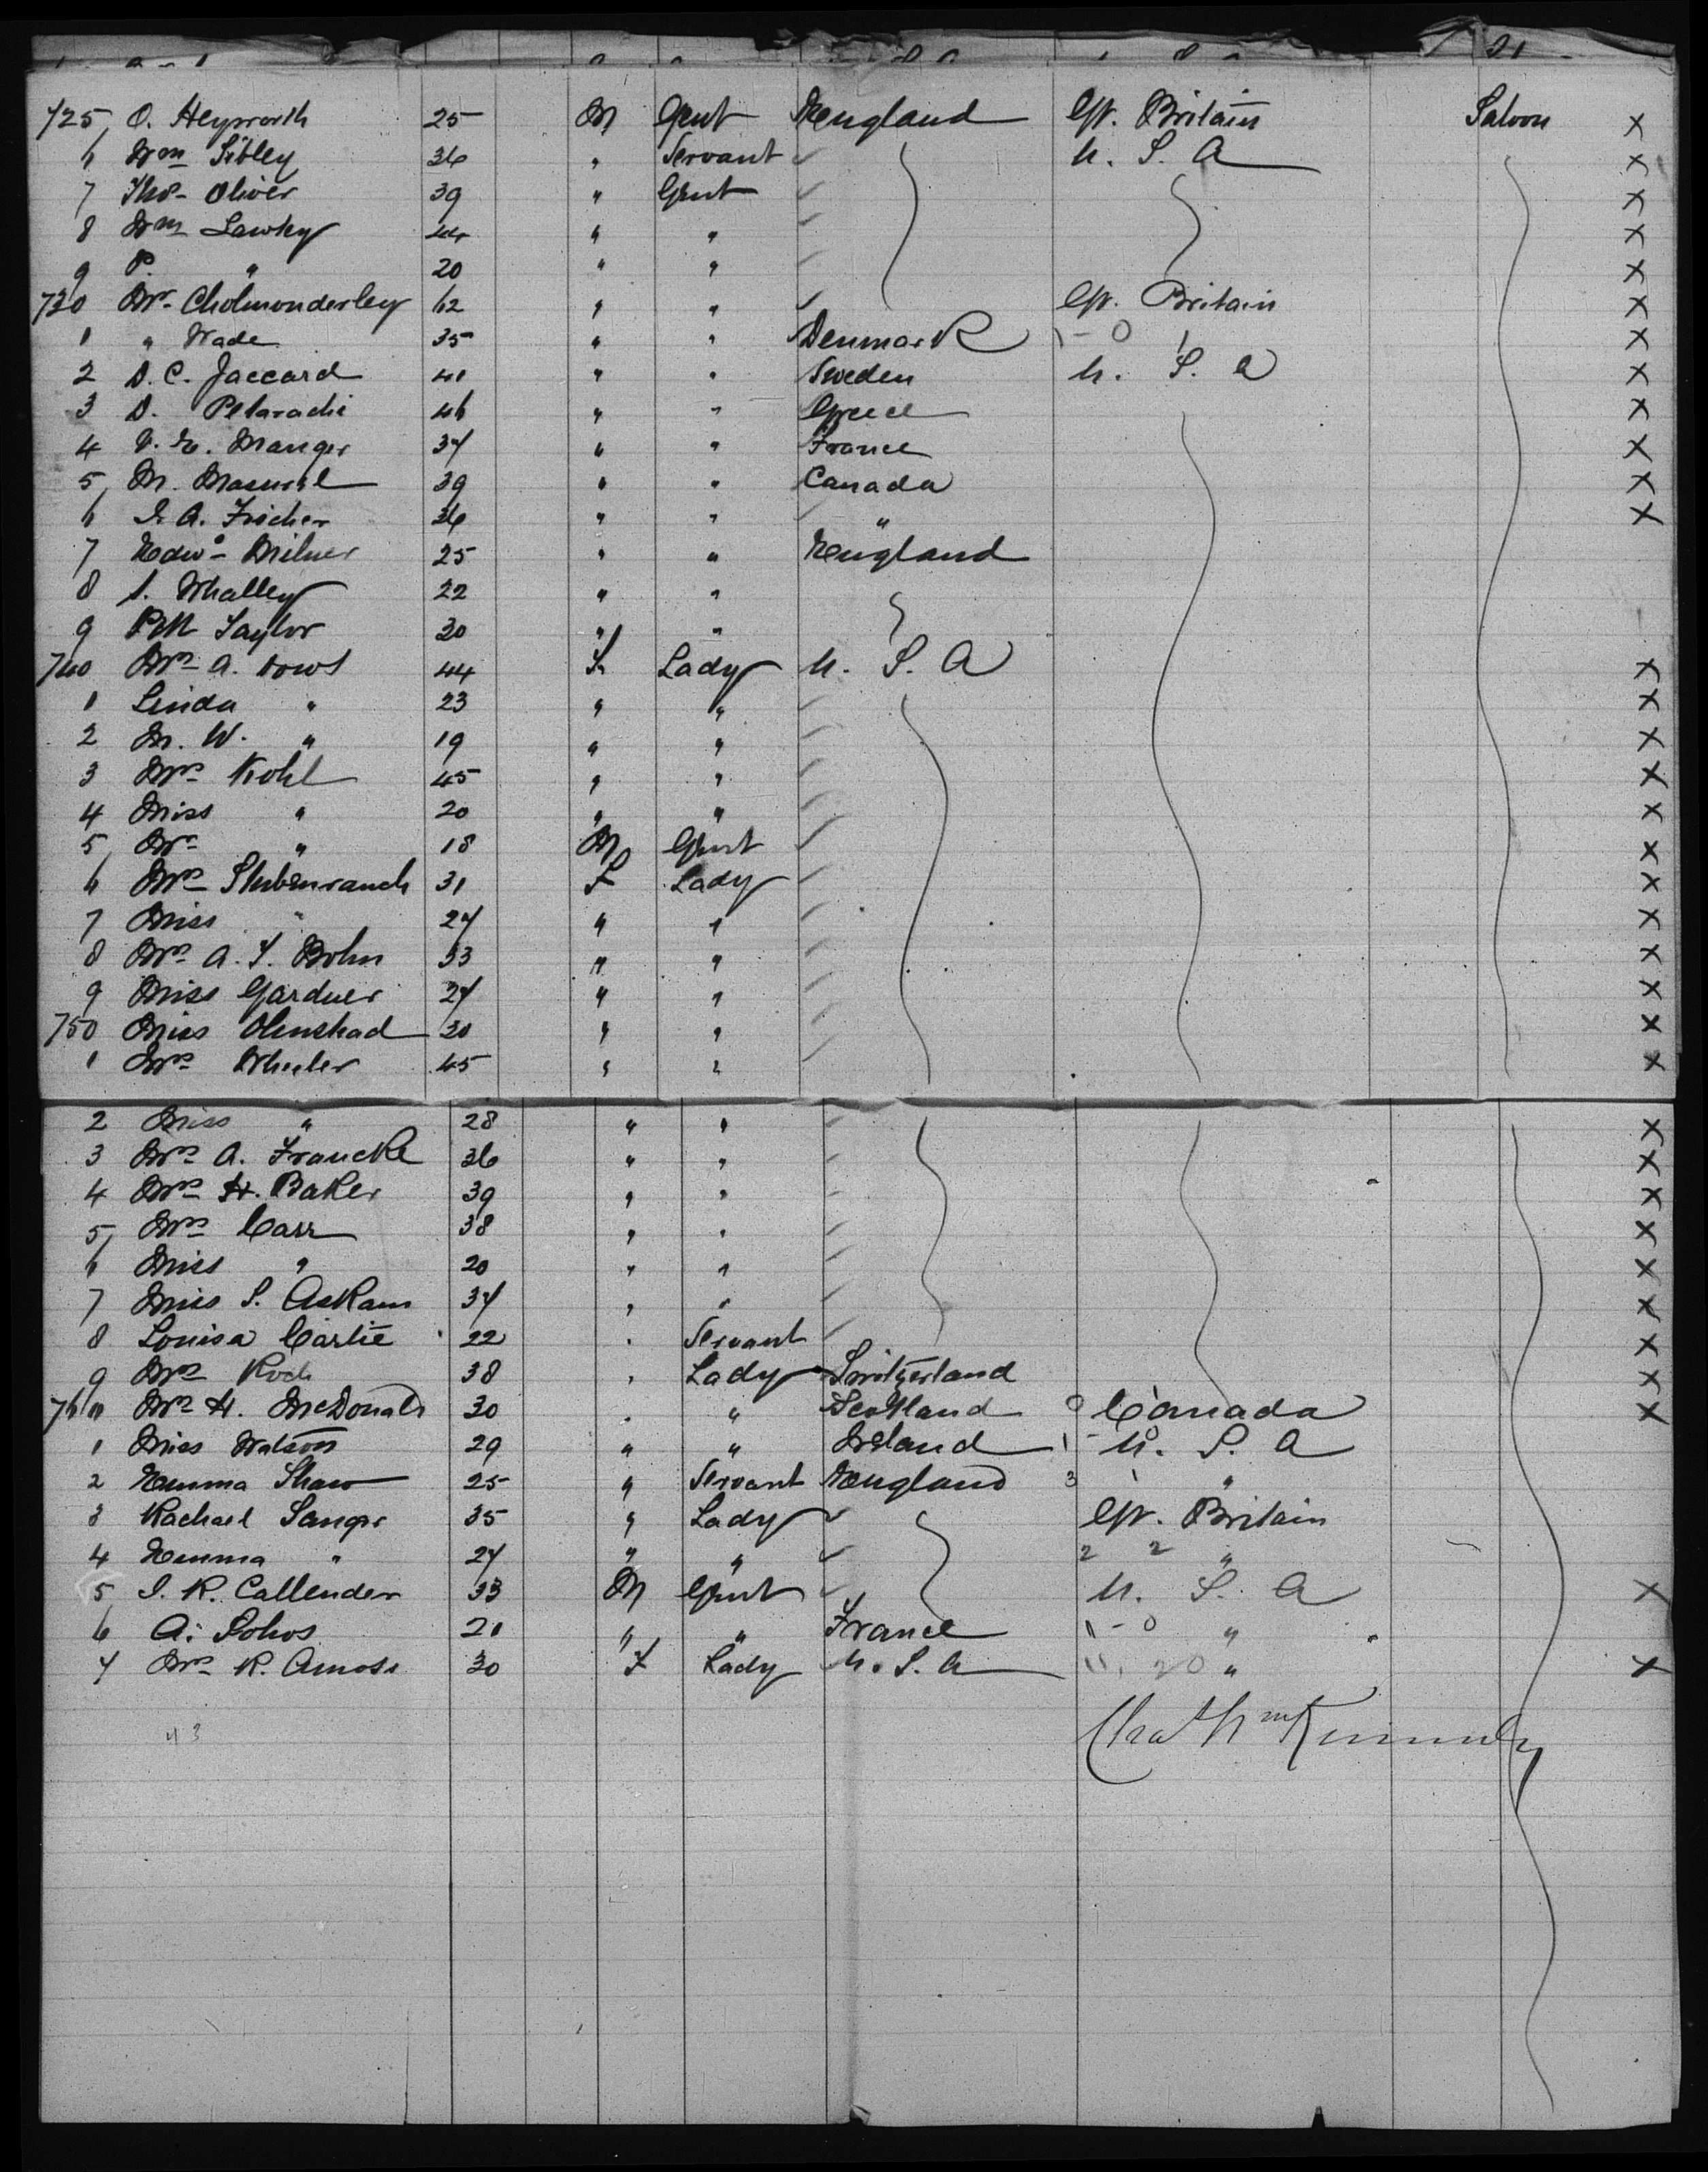 725 O. Heyworth 25 M Gent England Gt. Britain Saloon X
6 Wm Sibley 36 " Servant ✓ U. S. A X
7 Thos Oliver 39 " Gent ✓ X
8 Wm Lawley 24 " " ✓ X
9 P. " 20 " " ✓ X
730 Mr Cholmonderley 62 " " ✓ Gt. Britain X
1 " Wade 35 " " Denmark 1-0 1 X
2 D. C. Jaccard 41 " " Sweden U. S. A X
3 D. Petarachi 46 " " Greece X
4 Manger 37 " " France X
5 M. 39 " " Canada X
6 A. Fischer 36 " " " X
7 Edwd Milner 25 " " England
8 Whalley 22 " "
9 Taylor 30 " "
740 Mrs A. Dows 44 F Lady U. S. A X
1 Linda " 23 " " ✓ X
2 M. W. " 19 " " ✓ X
3 Mrs Kohl 45 " " ✓ X
4 Miss " 20 " " ✓ X
5 Mr " 18 M Gent ✓ X
6 Mrs Stubenrauch 31 F Lady ✓ X
7 Miss " 27 " " ✓ X
8 Mrs A. F. Bohn 33 " " ✓ X
9 Miss Gardner 27 " " ✓ X
750 Miss Olmstead 30 " " ✓ X
1 Mrs Wheeler 45 " " ✓ X
2 Miss " 28 " " ✓ X
3 Mrs A. Francke 36 " " ✓ X
4 Mrs H. Baker 39 " " ✓ X
5 Mrs Carr 38 " " ✓ X
6 Miss " 20 " " ✓ X
7 Miss S. Askam 37 " " ✓ X
8 Louisa Carlie 22 " Servant ✓ X
9 Mrs Koch 38 " Lady Switzerland X
760 Mrs H. McDonald 30 " " Scotland Canada X
1 Miss Watson 29 " " Ireland 1 U. S. A
2 Emma Shaw 25 " Servant England 3 "
3 Rachael Sanger 35 " Lady ✓ Gt. Britain
4 Emma " 27 " " ✓ 2 2 "
5 J. R. Callender 33 M Gent ✓ U. S. A X
6 A. Sohos 21 " " France 11-0 "
7 Mrs R. Amoss 30 F Lady U. S. A 11. 20 " X
Kennedy
43